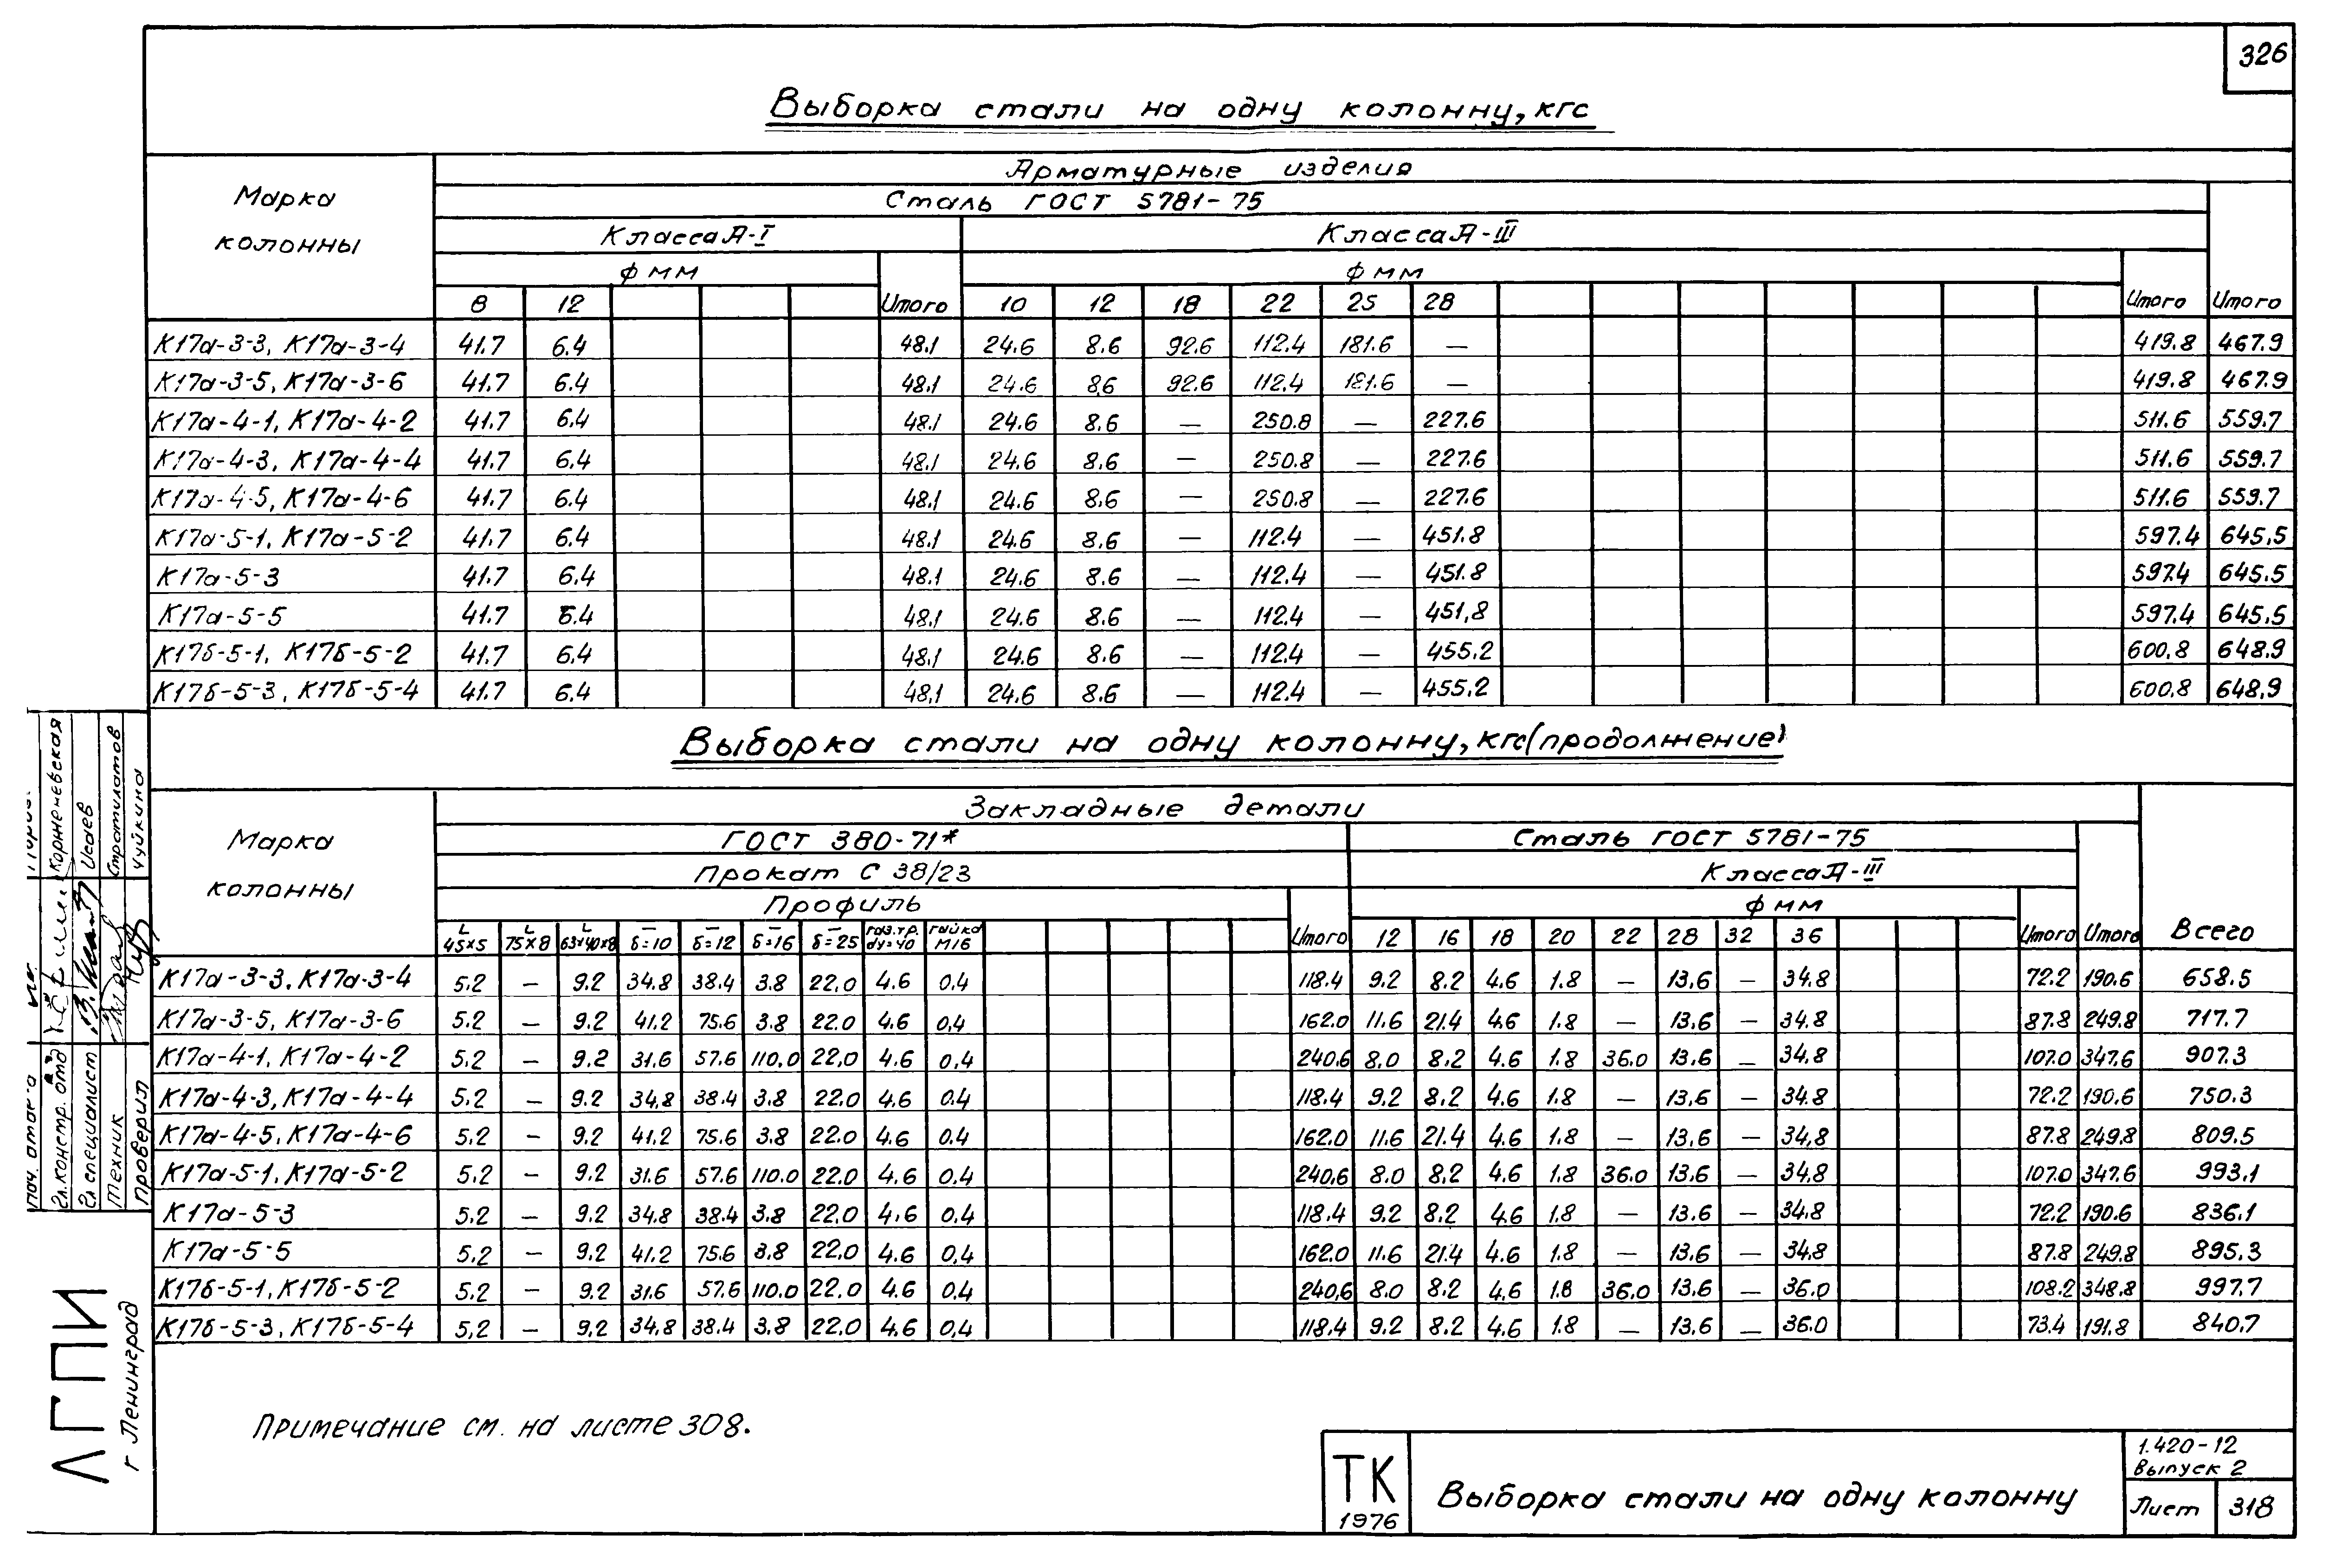 326
Выборка стали на одну колонну, кгс
Марка колонны
Арматурные изделия
Сталь ГОСТ 5781-75
Класса А-I Класса А-III
ф мм ф мм
8 12 Итого 10 12 18 22 25 28 Итого Итого
К17а-3-3, К17а-3-4 41.7 6.4 48.1 24.6 8.6 92.6 112.4 181.6 — 419.8 467.9
К17а-3-5, К17а-3-6 41.7 6.4 48.1 24.6 8.6 92.6 112.4 181.6 — 419.8 467.9
К17а-4-1, К17а-4-2 41.7 6.4 48.1 24.6 8.6 — 250.8 — 227.6 511.6 559.7
К17а-4-3, К17а-4-4 41.7 6.4 48.1 24.6 8.6 — 250.8 — 227.6 511.6 559.7
К17а-4-5, К17а-4-6 41.7 6.4 48.1 24.6 8.6 — 250.8 — 227.6 511.6 559.7
К17а-5-1, К17а-5-2 41.7 6.4 48.1 24.6 8.6 — 112.4 — 451.8 597.4 645.5
К17а-5-3 41.7 6.4 48.1 24.6 8.6 — 112.4 — 451.8 597.4 645.5
К17а-5-5 41.7 6.4 48.1 24.6 8.6 — 112.4 — 451,8 597.4 645.5
К17б-5-1, К17б-5-2 41.7 6.4 48.1 24.6 8.6 — 112.4 — 455.2 600.8 648.9
К17б-5-3, К17б-5-4 41.7 6.4 48.1 24.6 8.6 — 112.4 — 455.2 600.8 648.9
Выборка стали на одну колонну, кгс (продолжение)
Марка колонны
Закладные детали
ГОСТ 380-71* Сталь ГОСТ 5781-75
Прокат С 38/23 Класса А-III
Профиль ф мм
L 45×5 L 75×8 L 63×40×8 — δ=10 — δ=12 — δ=16 — δ=25 газ.тр. dу=40 гайка М16 Итого 12 16 18 20 22 28 32 36 Итого Итого Всего
К17а-3-3, К17а-3-4 5.2 — 9.2 34.8 38.4 3.8 22.0 4.6 0.4 118.4 9.2 8.2 4.6 1.8 — 13.6 — 34.8 72.2 190.6 658.5
К17а-3-5, К17а-3-6 5.2 — 9.2 41.2 75.6 3.8 22.0 4.6 0,4 162.0 11.6 21.4 4.6 1.8 — 13.6 — 34.8 87.8 249.8 717.7
К17а-4-1, К17а-4-2 5.2 — 9.2 31.6 57.6 110.0 22,0 4.6 0,4 240.6 8.0 8.2 4.6 1.8 36.0 13.6 — 34.8 107.0 347.6 907.3
К17а-4-3, К17а-4-4 5.2 — 9.2 34,8 38.4 3.8 22.0 4.6 0.4 118.4 9.2 8.2 4.6 1.8 — 13.6 — 34.8 72.2 190.6 750.3
К17а-4-5, К17а-4-6 5.2 — 9.2 41.2 75.6 3.8 22.0 4.6 0.4 162.0 11.6 21.4 4.6 1.8 — 13.6 — 34,8 87.8 249.8 809.5
К17а-5-1, К17а-5-2 5.2 — 9.2 31.6 57.6 110.0 22.0 4.6 0.4 240,6 8.0 8.2 4.6 1.8 36.0 13.6 — 34.8 107.0 347.6 993.1
К17а-5-3 5.2 — 9.2 34.8 38.4 3.8 22.0 4.6 0.4 118.4 9.2 8.2 4.6 1.8 — 13.6 — 34.8 72.2 190.6 836.1
К17а-5-5 5.2 — 9.2 41.2 75.6 3.8 22.0 4.6 0.4 162.0 11.6 21.4 4.6 1.8 — 13.6 — 34.8 87.8 249.8 895.3
К17б-5-1, К17б-5-2 5.2 — 9.2 31.6 57.6 110.0 22.0 4.6 0.4 240,6 8.0 8.2 4.6 1.8 36.0 13.6 — 36.0 108.2 348.8 997.7
К17б-5-3, К17б-5-4 5,2 — 9.2 34.8 38.4 3.8 22.0 4.6 0,4 118.4 9.2 8.2 4.6 1.8 — 13.6 — 36.0 73.4 191.8 840.7
Примечание см. на листе 308.
ТК
1976
Выборка стали на одну колонну
1.420-12
Выпуск 2
Лист 318
Гл.констр. отд Корженевская
Гл специалист Исаев
Техник Стратилатов
Проверил Чуйкина
ЛГПИ
г Ленинград